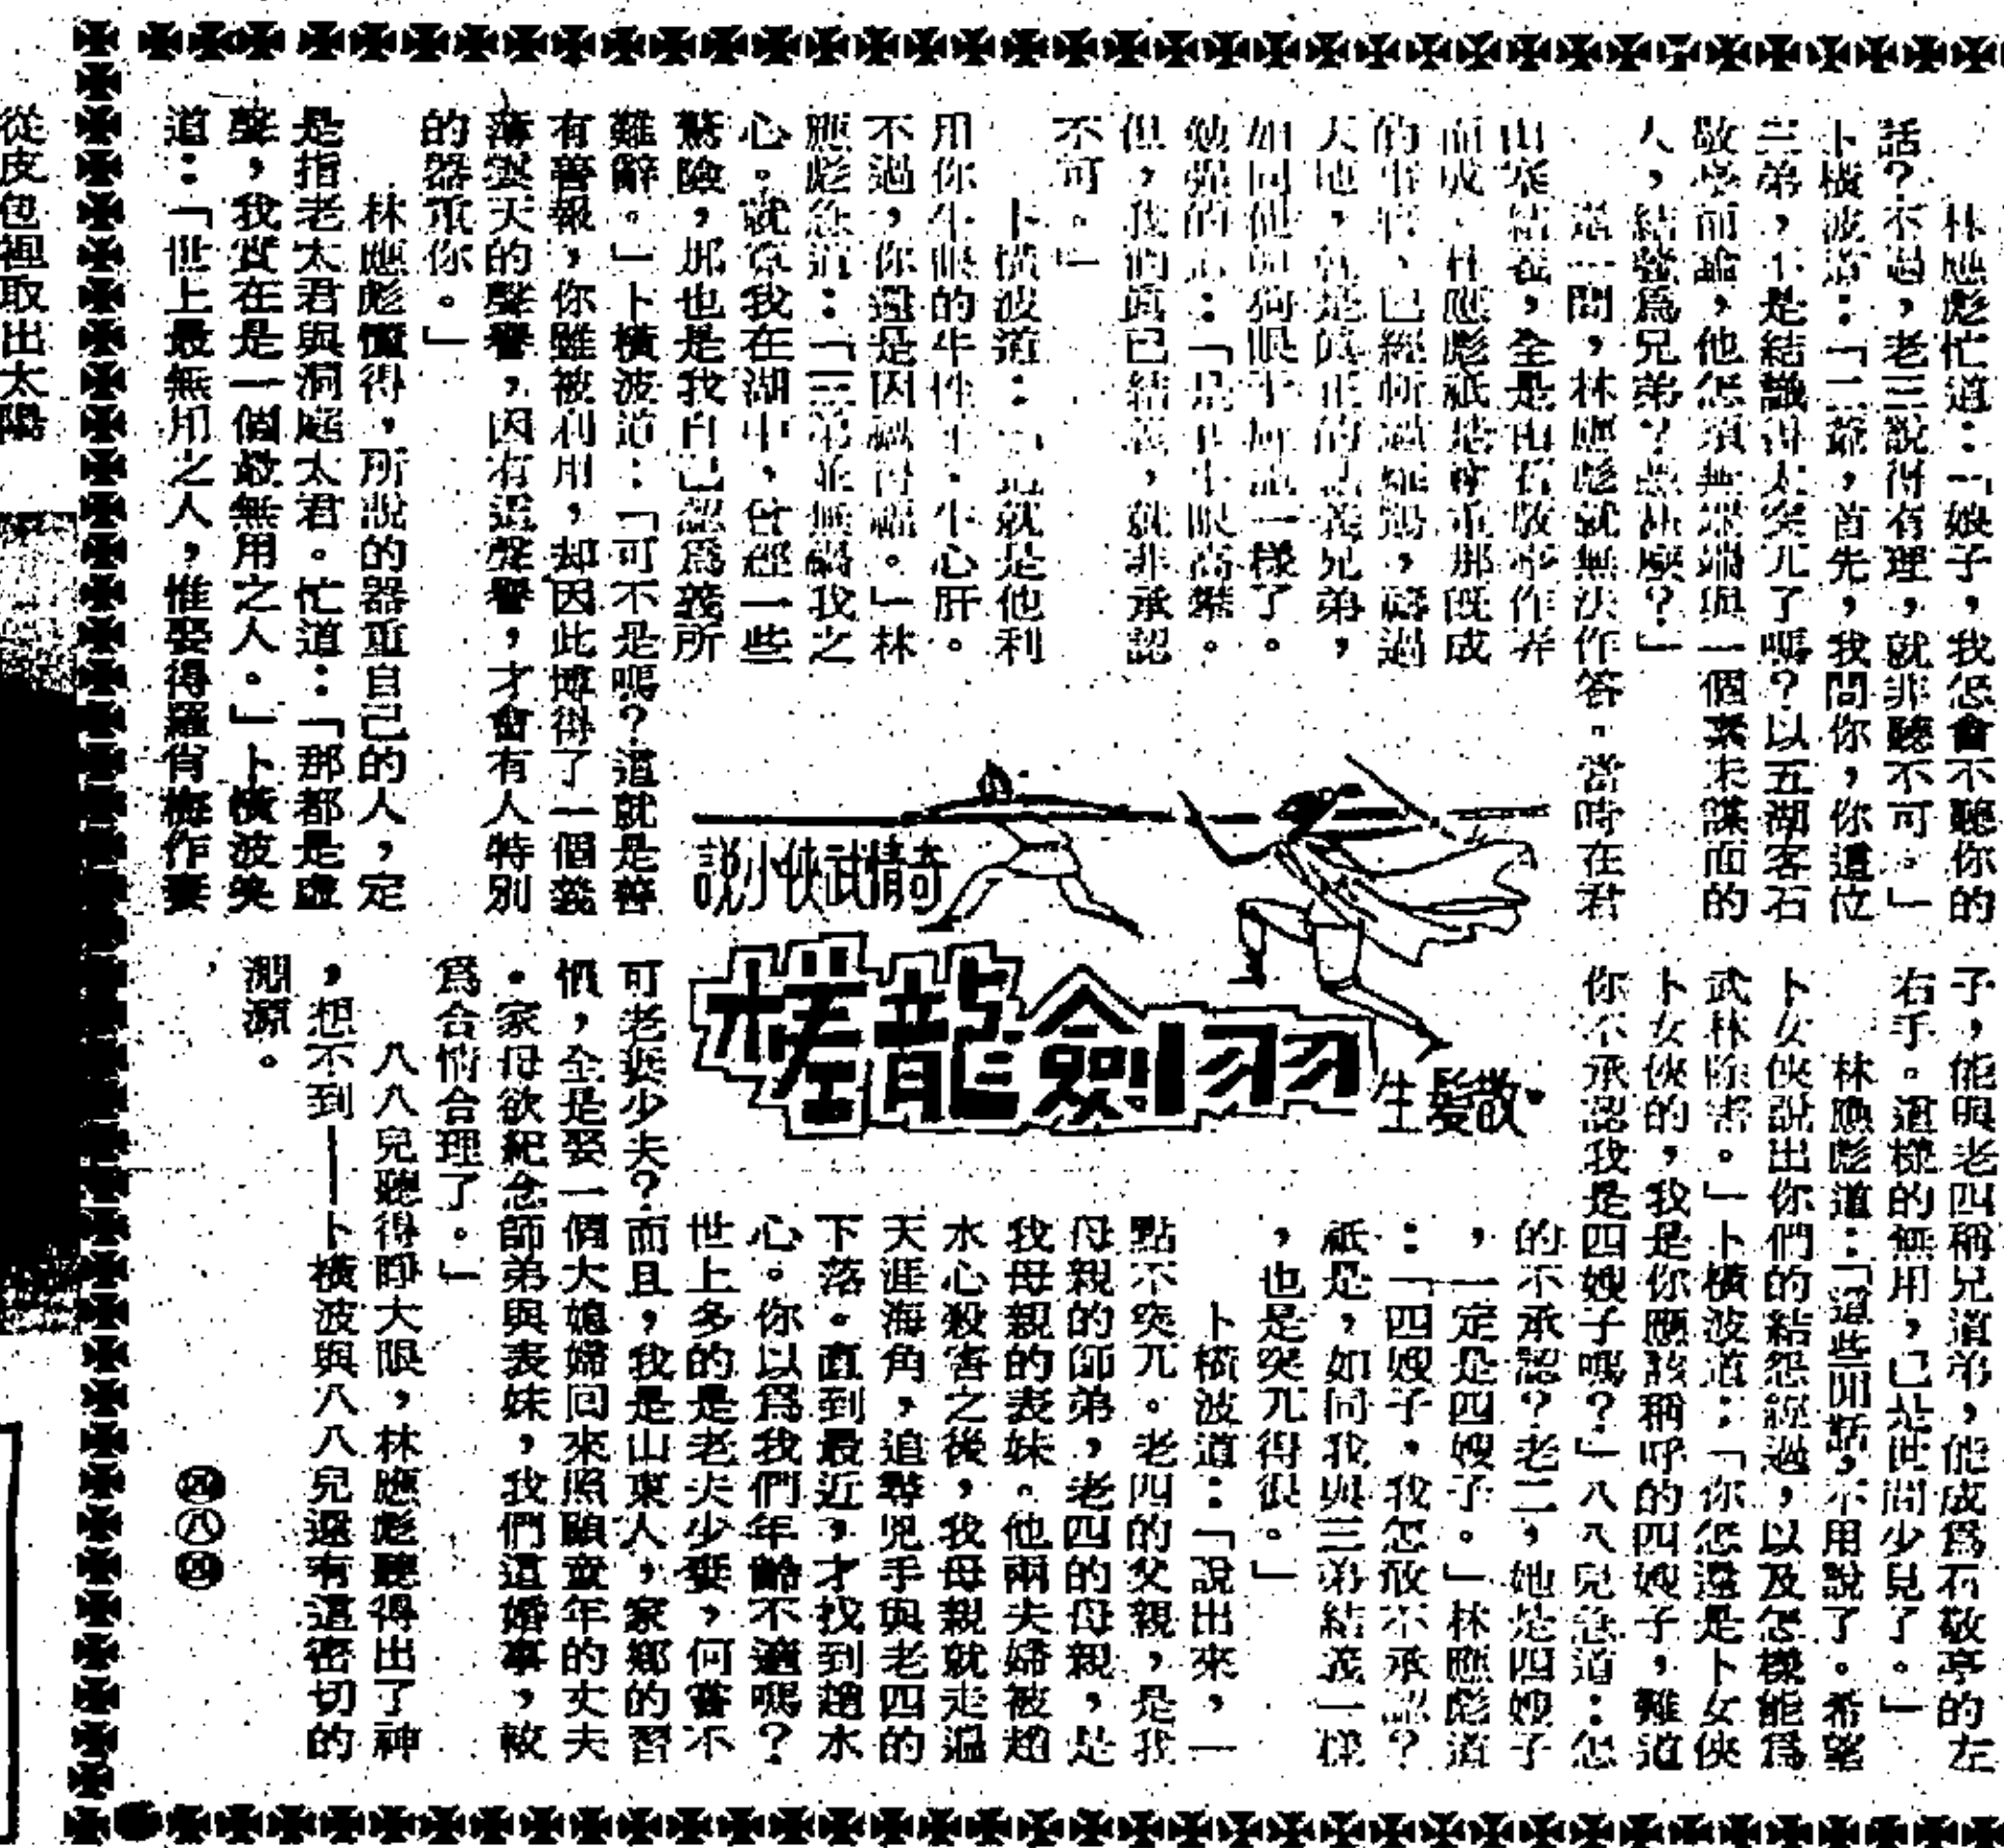 林應彪忙道：「娘子，我怎會不聽你的
話？不過，老三說得有理，就非聽不可。」
卜橫波道：「二爺，首先，我問你，你這位
三弟，不是結識得太突兀了嗎？以五湖客石
敬亭而論，他怎須無端端與一個素未謀面的
人，結盟爲兄弟？
這一問，林應彪就無法作答。當時在君
山寨結義，全是由石敬亭作弄
而成，林應彪祇是尊重那既成
的事實，已經
天地，就是真正的結義兄弟，
如同他與狗眼一樣了。
勉強的
但，我們既已結義，就非承認
不可。」
卜橫波道：「這就是他利
用你牛眼的牛性子，牛心肝。
不過，你還是因禍得福。」林
應彪急道：「三弟並無禍我之
心。就算我在湖中，曾經一些
驚險，那也是我自己認爲義所
難辭。」卜橫波道：「可不是嗎？這就是善
有善報，你雖被利用，却因此博得了一個義
薄雲天的聲譽，因有這聲譽，才會有人特別
的器重你。」
林應彪懂得，所說的器重自己的人，定
是指老太君與洞庭太君。忙道：「那都是虛
聲，我實在是一個最無用之人。」卜橫波笑
道：「世上最無用之人，惟娶得羅肖梅作妻
子，能與老四稱兄道弟，能成爲石敬亭的左
右手。這樣的無用，已是世間少見了。」
林應彪道：「這些閒話，不用說了。希望
卜女俠說出你們的結怨經過，以及怎樣能爲
武林除害。」卜橫波道：「你怎還是卜女俠
卜女俠的，我是你應該稱呼的四嫂子，難道
你不承認我是四嫂子嗎？」八八兒急道：怎
的不承認？老二，她是四嫂子
，一定是四嫂子。」林應彪道
：「四嫂子，我怎敢不承認？
祇是，如同我與三弟結義一樣
，也是突兀得很。」
卜橫波道：「說出來，一
點不突兀。老四的父親，是我
母親的師弟，老四的母親，是
我母親的表妹。他兩夫婦被趙
水心殺害之後，我母親就走遍
天涯海角，追尋兇手與老四的
下落。直到最近，才找到趙水
心。你以爲我們年齡不適嗎？
世上多的是老夫少妻，何嘗不
可老妻少夫？而且，我是山東人，家鄉的習
慣，全是娶一個大媳婦回來照顧童年的丈夫
。家母欲紀念師弟與表妹，我們這婚事，被
爲合情合理了。」
八八兒聽得睜大眼，林應彪聽得出了神
，想不到——卜橫波與八八兒還有這密切的
淵源。
四八四
奇情武俠小說
羽劍龍槎
散髮生
從皮包裡取出太陽